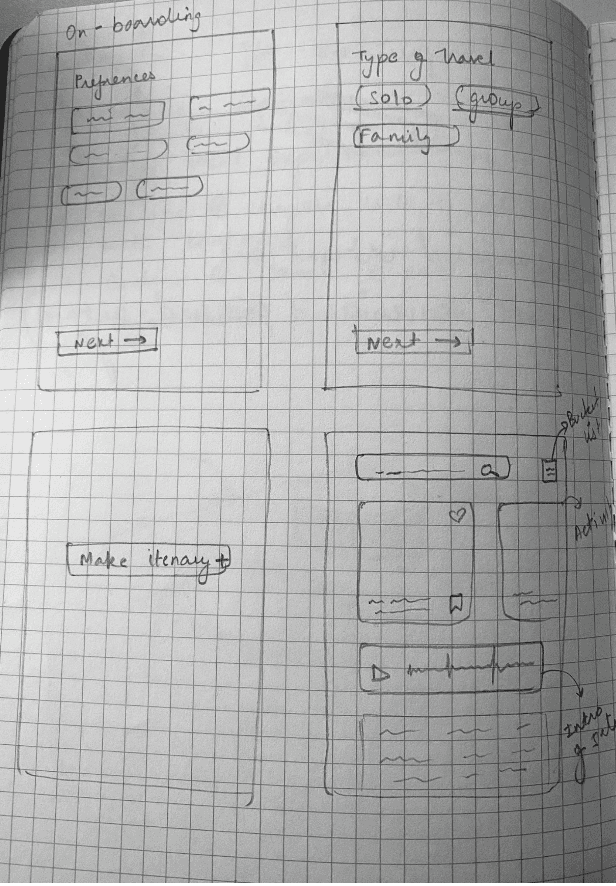 On-boarding
Prefrences
Next →
Type of travel
Solo
group
Family
Next →
Make itenary +
Bucket list
Intro
of